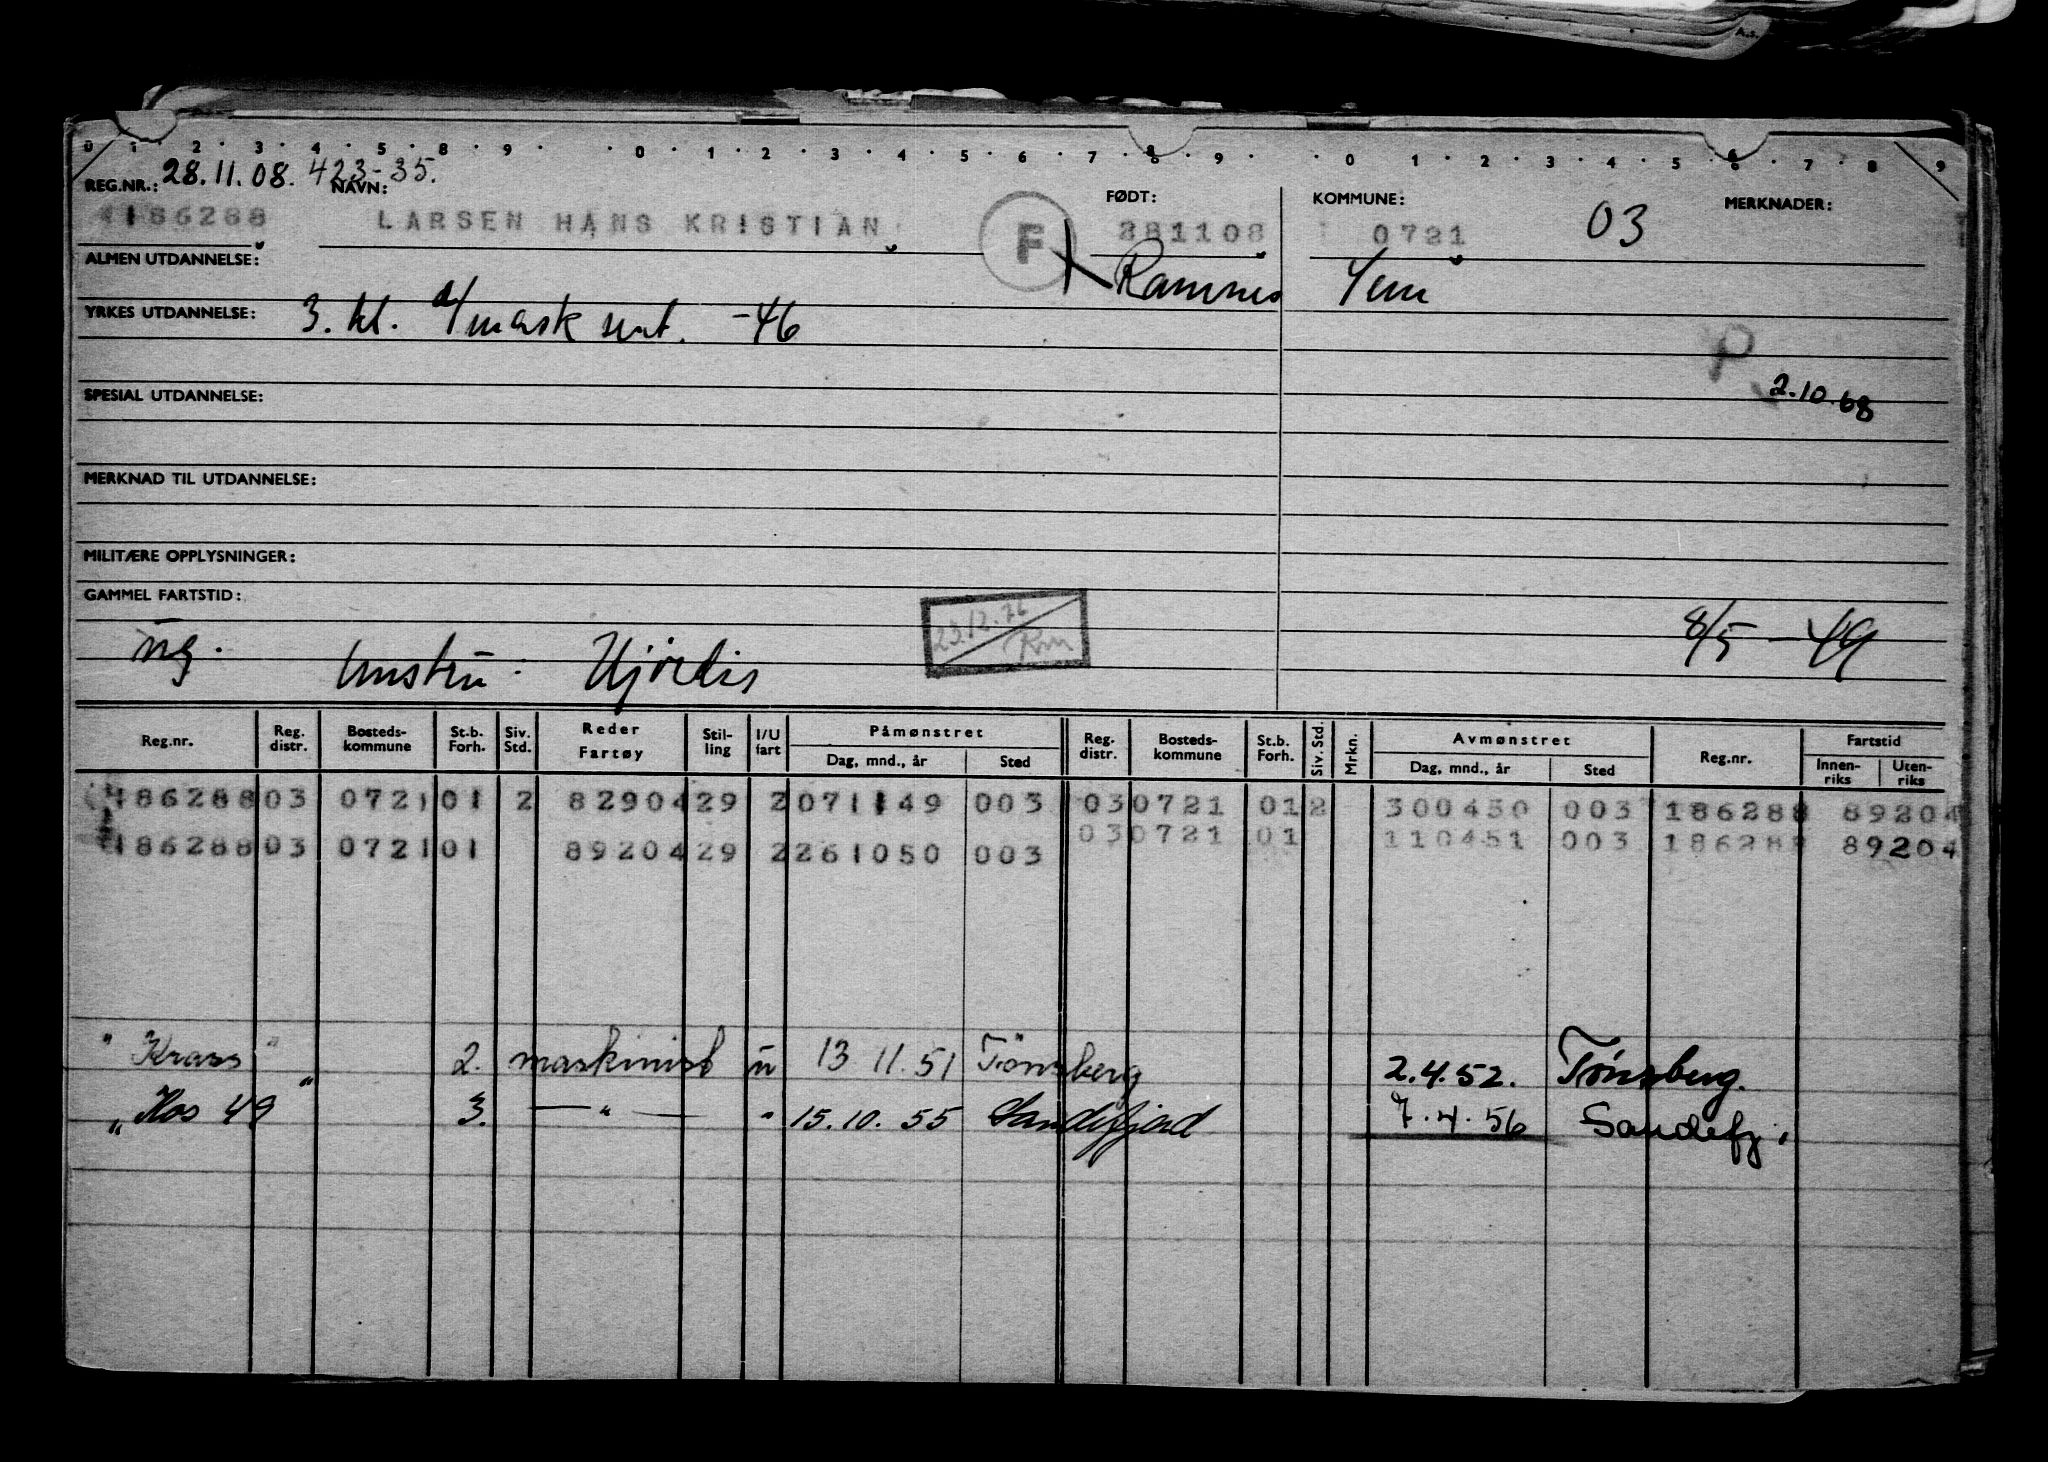 A.s.
0 1 2 3 4 5 8 9 0 1 2 3 4 5 6 7 8 9 0 1 2 3 4 5 6 7 8 9
28.11.08. 423-35.
REG.NR.: NAVN: FØDT: KOMMUNE: 03 MERKNADER:
186288 LARSEN HANS KRISTIAN F 281108 0721
ALMEN UTDANNELSE: Ramnes Sem
YRKES UTDANNELSE: 3. kl. a/mask sert. -46
P
SPESIAL UTDANNELSE: 2.10.68
MERKNAD TIL UTDANNELSE:
MILITÆRE OPPLYSNINGER:
GAMMEL FARTSTID:
23.12.76 Rm 8/5-49
ug. hustru: Hjørdis
Reg.nr. Reg. distr. Bosteds-kommune St.b. Forh. Siv. Std. Reder Fartøy Stil-ling I/U fart Påmønstret Dag, mnd., år Sted Reg. distr. Bosteds-kommune St.b. Forh. Siv. Std. Mrkn. Avmønstret Dag, mnd., år Sted Reg.nr. Fartstid Innen-riks Uten-riks
186288 03 0721 01 2 82904 29 2 071149 003 03 0721 01 2 300450 003 186288 89204
186288 03 0721 01 89204 29 2 261050 003 03 0721 01 110451 003 186288 89204
" Krass " 2. maskinist u 13 11.51 Tønsberg 2.4.52. Tønsberg.
" Kos 49 " 3. — " — " 15.10.55 Sandefjord 7.4.56 Sandefj.